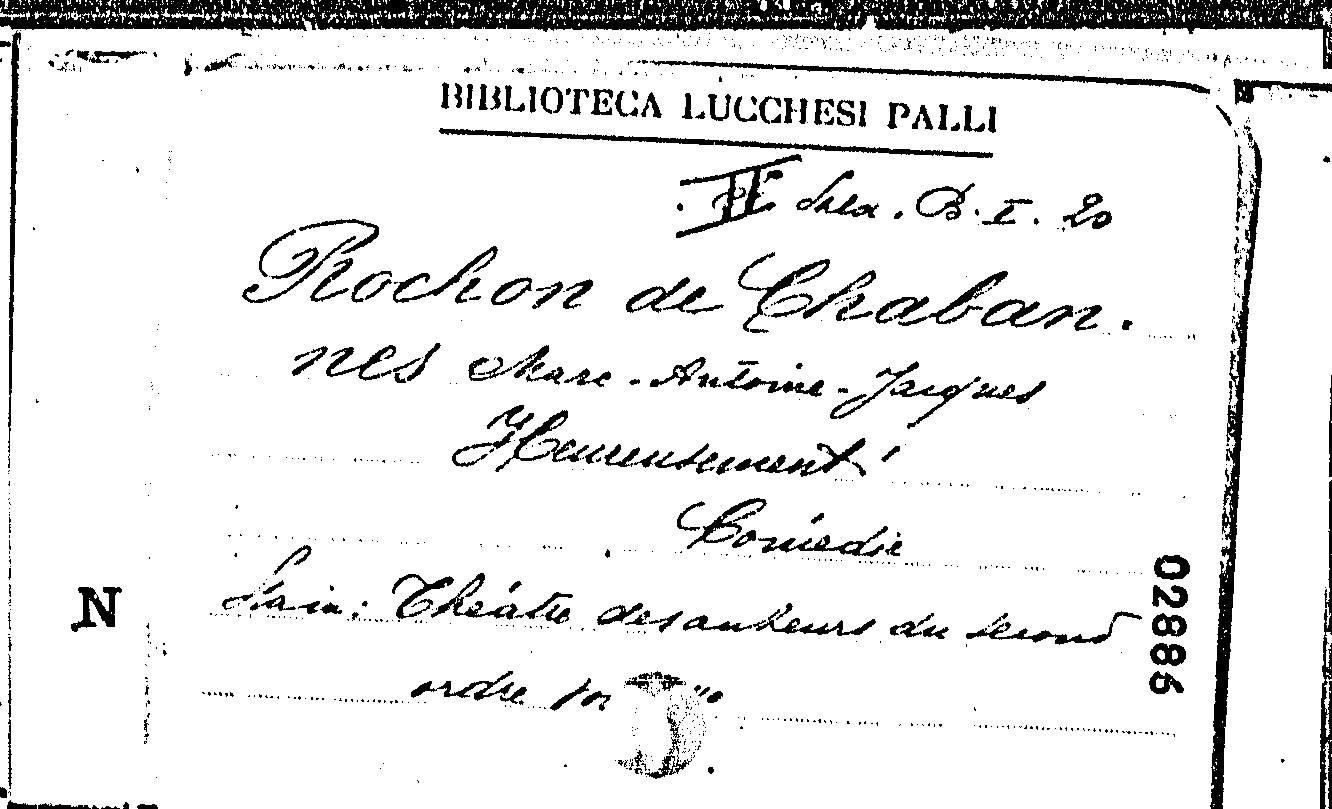 BIBLIOTECA LUCCHESI PALLI
II Sala. B. I. 20
Rochon de Chaban.
nes Marc-Antoine-Jacques
Heureusement
Comédie
Théâtre des auteurs du second
ordre
N
02886